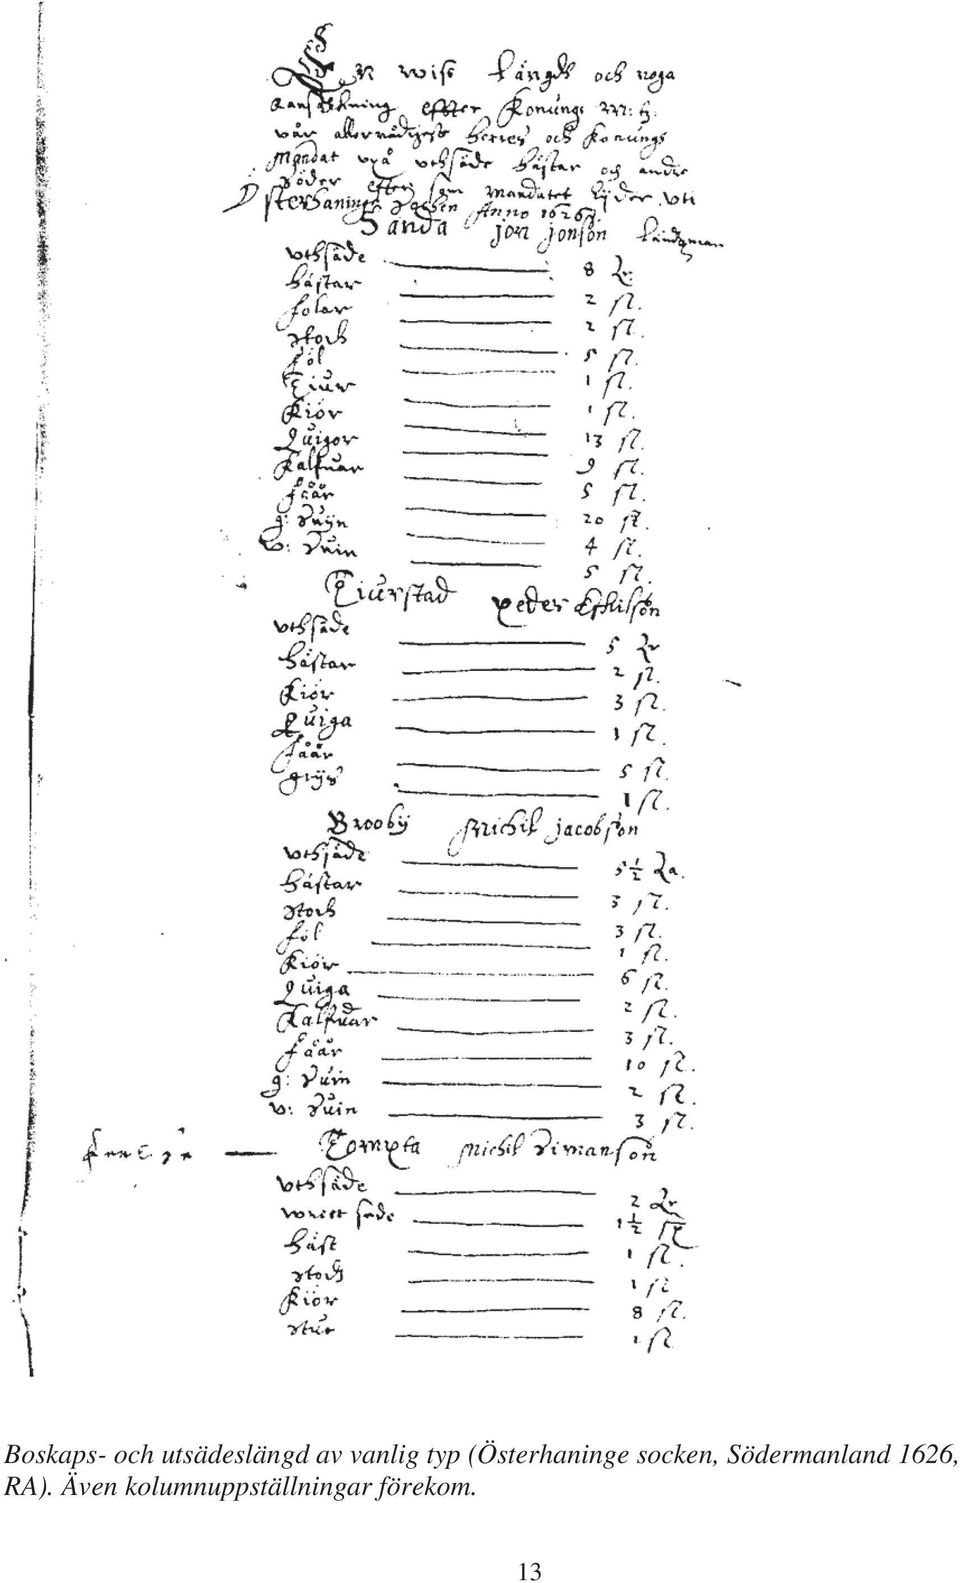 En wiss Längdh och noga
Ransakning effter Konungz M:tz:
vår allernådigeste Herres och Konungs
Mandat vpå vthsäde Hästar och andre
effter som mandatet lyder vti
Österhaninge Sochen Anno 1626
Sanda Jon Jonson Ländzman
vthsäde 8 Tr
Hästar 2 st.
Folar 2 st.
Stodh 5 st.
Föl 1 st.
Tiur 1 st.
Kiör 13 st.
Quigor 9 st.
Kalfuar 5 st.
Fåår 20 st.
g: Suijn 4 st.
v: Suin 5 st.
Tiurstad Peder Eskilson
vthsäde 5 Tr
Hästar 2 st.
Kiör 3 st.
Quiga 1 st.
Fåår 5 st.
grijs 1 st.
Brooby Michil Jacobson
vthsäde 5 1/2 Ta.
Hästar 3 st.
Stodh 3 st.
Föl 1 st.
Kiör 6 st.
Quiga 2 st.
Kalfuar 3 st.
Fåår 10 st.
g: Suin 2 st.
v: Suin 3 st.
Torpta Michil Simanson
vthsäde 2 Tr
säde 1 1/2
Häst 1 st.
Stodh 1 st
Kiör 8 st.
Stut 1 st
Boskaps- och utsädeslängd av vanlig typ (Österhaninge socken, Södermanland 1626,
RA). Även kolumnuppställningar förekom.
13